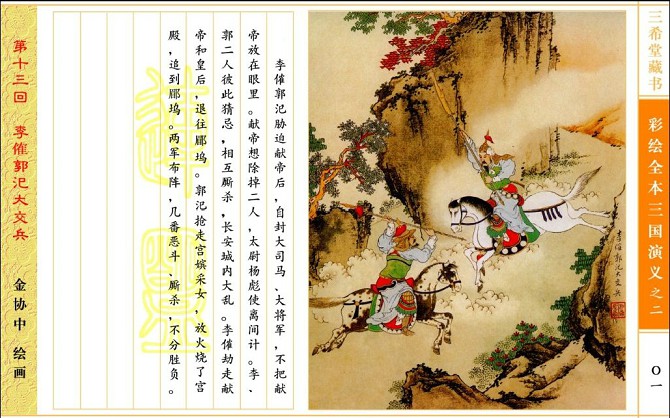 三希堂藏书
彩绘全本三国演义之二
〇一
李傕郭汜大交兵
李傕郭汜胁迫献帝后，自封大司马、大将军，不把献
帝放在眼里。献帝想除掉二人，太尉杨彪使离间计。李、
郭二人彼此猜忌，相互厮杀，长安城内大乱。李傕劫走献
帝和皇后，退往郿坞。郭汜抢走宫嫔采女，放火烧了宫
殿，追到郿坞。两军布阵，几番恶斗、厮杀，不分胜负。
第十三回 李傕郭汜大交兵
金协中 绘画